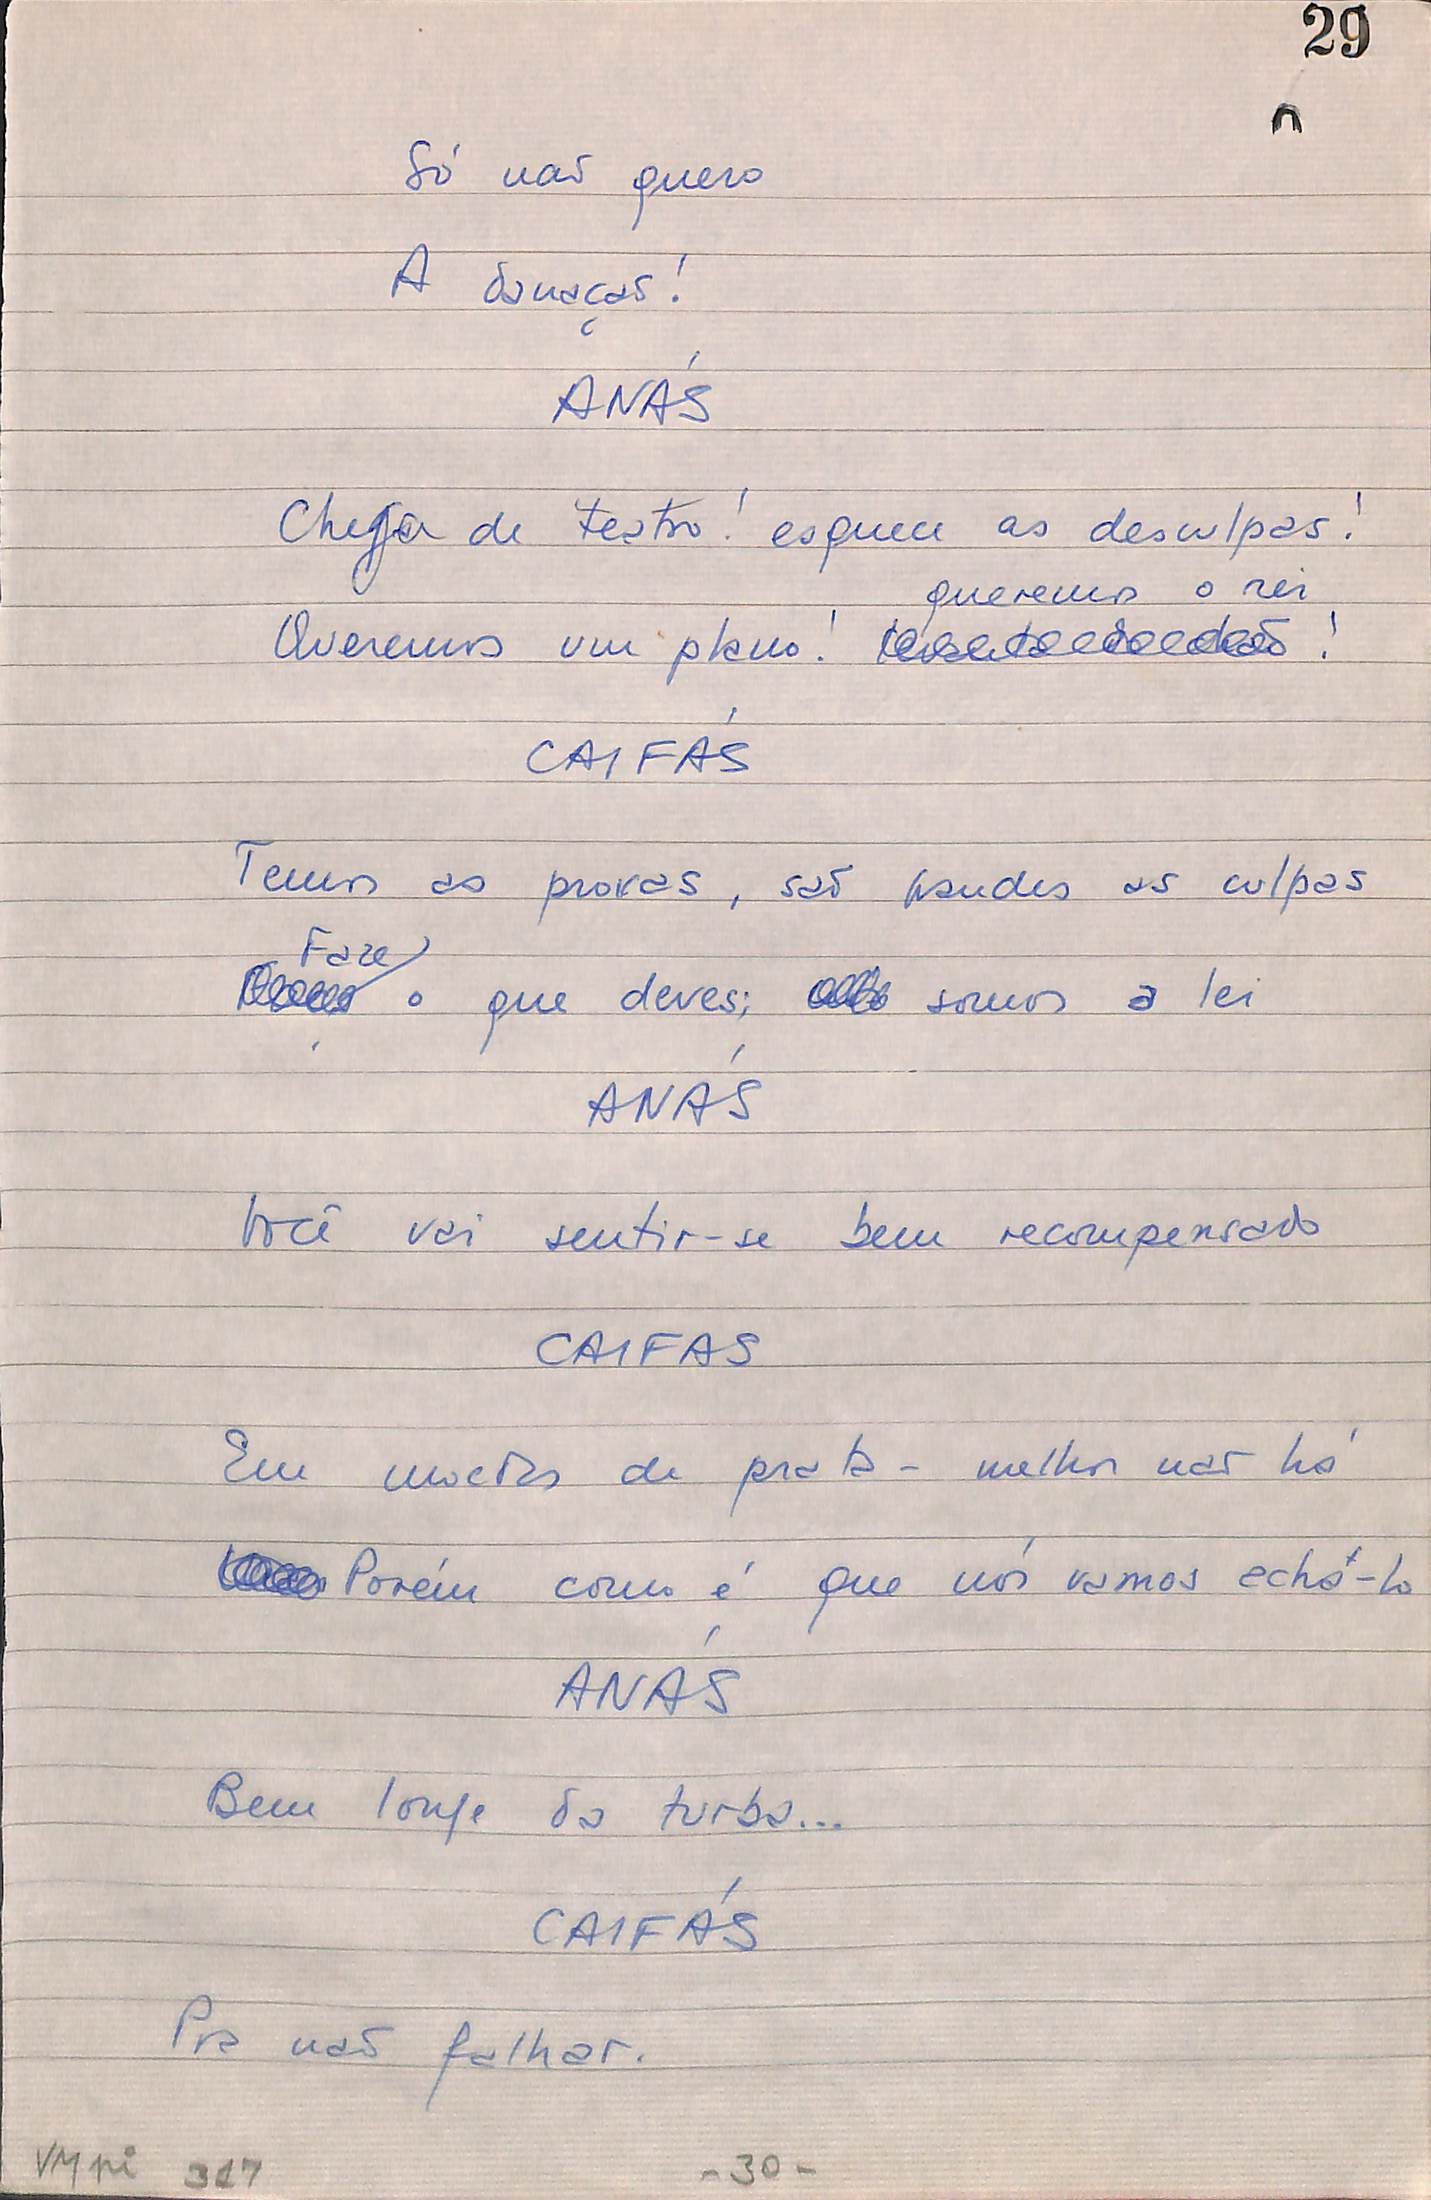 29
n
Só não quero
A danação!
ANÁS
Chega de teatro! esquece as desculpas!
queremos o rei
Queremos um plano! !
CAIFÁS
Temos as provas, são grandes as culpas
Faze
o que deves; somos a lei
ANÁS
Você vai sentir-se bem recompensado
CAIFAS
Em moedas de prata - melhor não há
Porém como é que nós vamos achá-lo
ANÁS
Bem longe da turba...
CAIFÁS
Pra não falhar.
VMpi 317
-30-